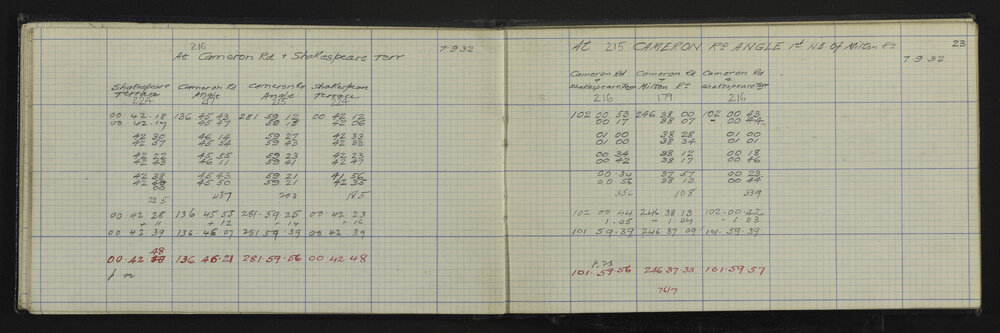 216
At Cameron Rd & Shakespeare Terr 7 9 32
Shakespeare Cameron Rd Cameron Rd Shakespeare
Terrace Angle Angle Terrace
224 217 215 224
00 42 18 136 45 43 281 59 12 00 42 12
00 42 17 45 47 59 18 42 06
42 30 46 14 59 27 42 33
42 57 45 54 59 43 42 38
42 22 45 55 59 23 42 23
42 43 46 11 59 41 42 47
42 38 45 43 59 21 41 56
42 45 50 59 21 42 38
225 437 208 185
00 42 28 136.45.55 281.59.25 00.42 23
+ 11 + 12 + 14 + 16
00 42 39 136.46 07 281.59.39 00.42.39
48
00.42 136 46.21 281.59.56 00 42 48
p 22
At 215 CAMERON RD ANGLE 1st N.E OF Milton Rd 23
7 9.32
Cameron Rd Cameron Rd Cameron Rd
& & &
Shakespeare Terr Milton Rd Shakespeare Terr
216 179 216
102 00 53 246 38 00 102 00 43
00 17 38 07 - 00 44
01 00 38 28 01 00
01 00 38 34 01 01
00 34 38 12 00 18
00 42 38 17 00 46
00 34 37 57 00 23
00 56 38 13 00 44
356 108 339
102 00 44 246 38 13 102.00.42
1.05 - 1.04 - 1 03
101 59.39 246 37 09 101.59.39
p.23
101.59 56 246 37.33 101.59.57
76/7